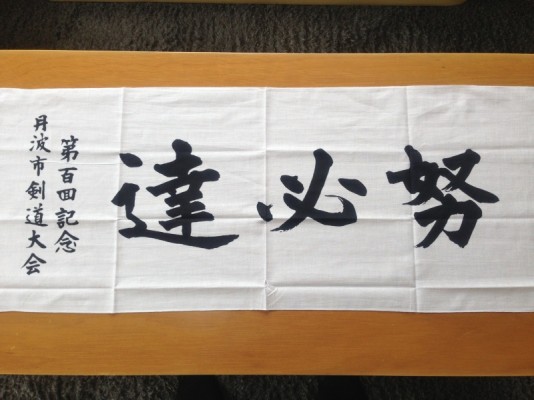 努必達
第百回記念
丹波市剣道大会